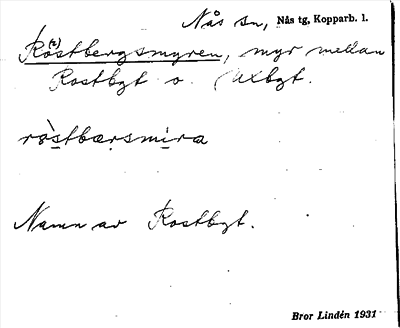 Nås sn, Nås tg, Kopparb. l.
Ro(s)stbergsmyren, myr mellan
Rostbgt o. Uxbgt.
ròstbærsmira
Namn av Rostbgt.
Bror Lindén 1931